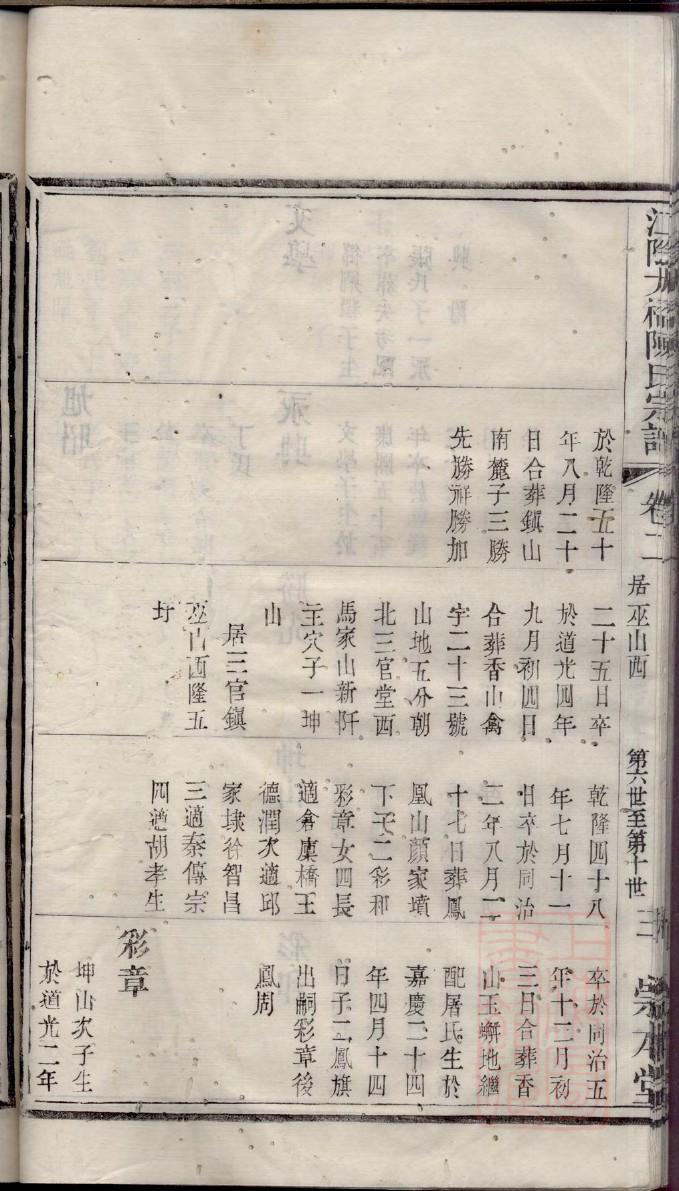 江陰九橋陳氏宗譜
卷二
居巫山西
第六世至第十世
崇本堂
於乾隆五十
年八月二十
日合葬鎮山
南麓子三勝
先勝祥勝加
二十五日卒
於道光四年
九月初四日
合葬香山禽
字二十三號
山地五分朝
北三官堂西
馬家山新阡
主穴子一坤
山
居三官鎮
巫山西隆五
圩
乾隆四十八
年七月十一
日卒於同治
二年八月二
十七日葬鳳
凰山顏家墳
下子二彩和
彩章女四長
適倉廩橋王
德潤次適邱
家埭徐智昌
三適秦傳宗
四適胡孝生
卒於同治五
年十二月初
三日合葬香
山玉蠏地繼
配屠氏生於
嘉慶二十四
年四月十四
日子二鳳旗
出嗣彩章後
鳳周
彩章
坤山次子生
於道光二年